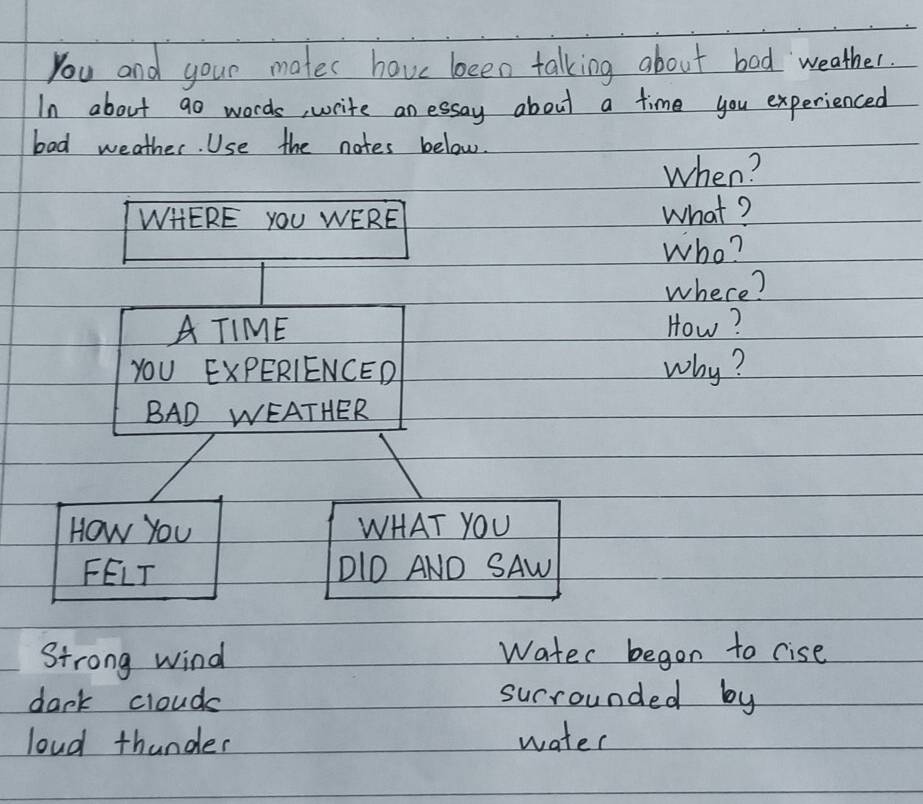 You and your mates have been talking about bad weather.
In about 90 words, write an essay about a time you experienced
bad weather. Use the notes below.
When?
What?
Who?
Where?
How?
Why?
WHERE YOU WERE
A TIME
YOU EXPERIENCED
BAD WEATHER
HOW YOU
FELT
WHAT YOU
DID AND SAW
Strong wind
dark clouds
loud thunder
Water began to rise
surrounded by
water